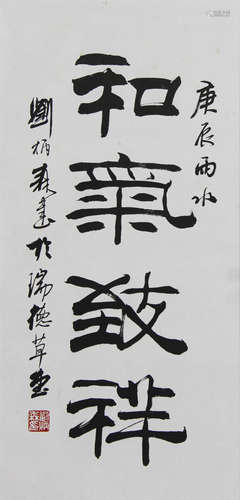 庚辰雨水
和氣致祥
劉炳森書於瑞德草堂